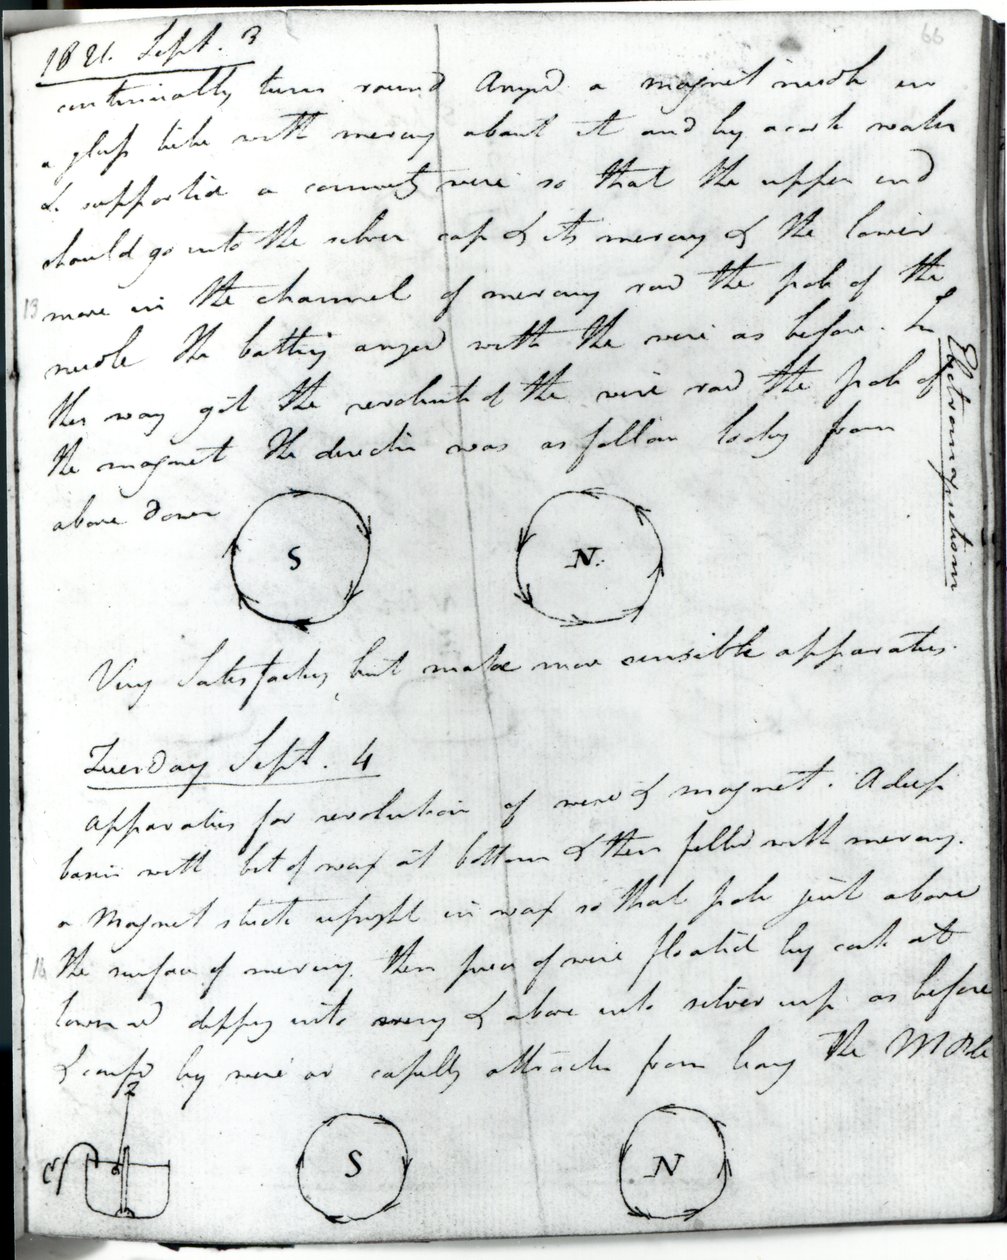 66
1821. Sept. 3
continually turn round Arrangd a magnet needle in
a glass tube with mercury about it and by a cork water
&c supported a connecting wire so that the upper end
should go into the silver cup & its mercury & the lower
13 move in the channel of mercury round the pole of the
needle The battery arranged with the wire as before. In
this way got the revolution of the wire round the pole of
the magnet The direction was as follow looking from
above down
S N.
Electromagnetism
Very Satisfactory but make more sensible apparatus.
Tuesday Sept. 4
apparatus for revolution of wire & magnet. A deep
basin with bit of wax at bottom & then filled with mercury.
a Magnet stuck upright in wax so that pole just above
the surface of mercury. then piece of wire floated by cork at
lower end dipping into mercury & above into silver cup as before
& confd by wire or capilly attraction from leaving the M Pole
Z
C S N